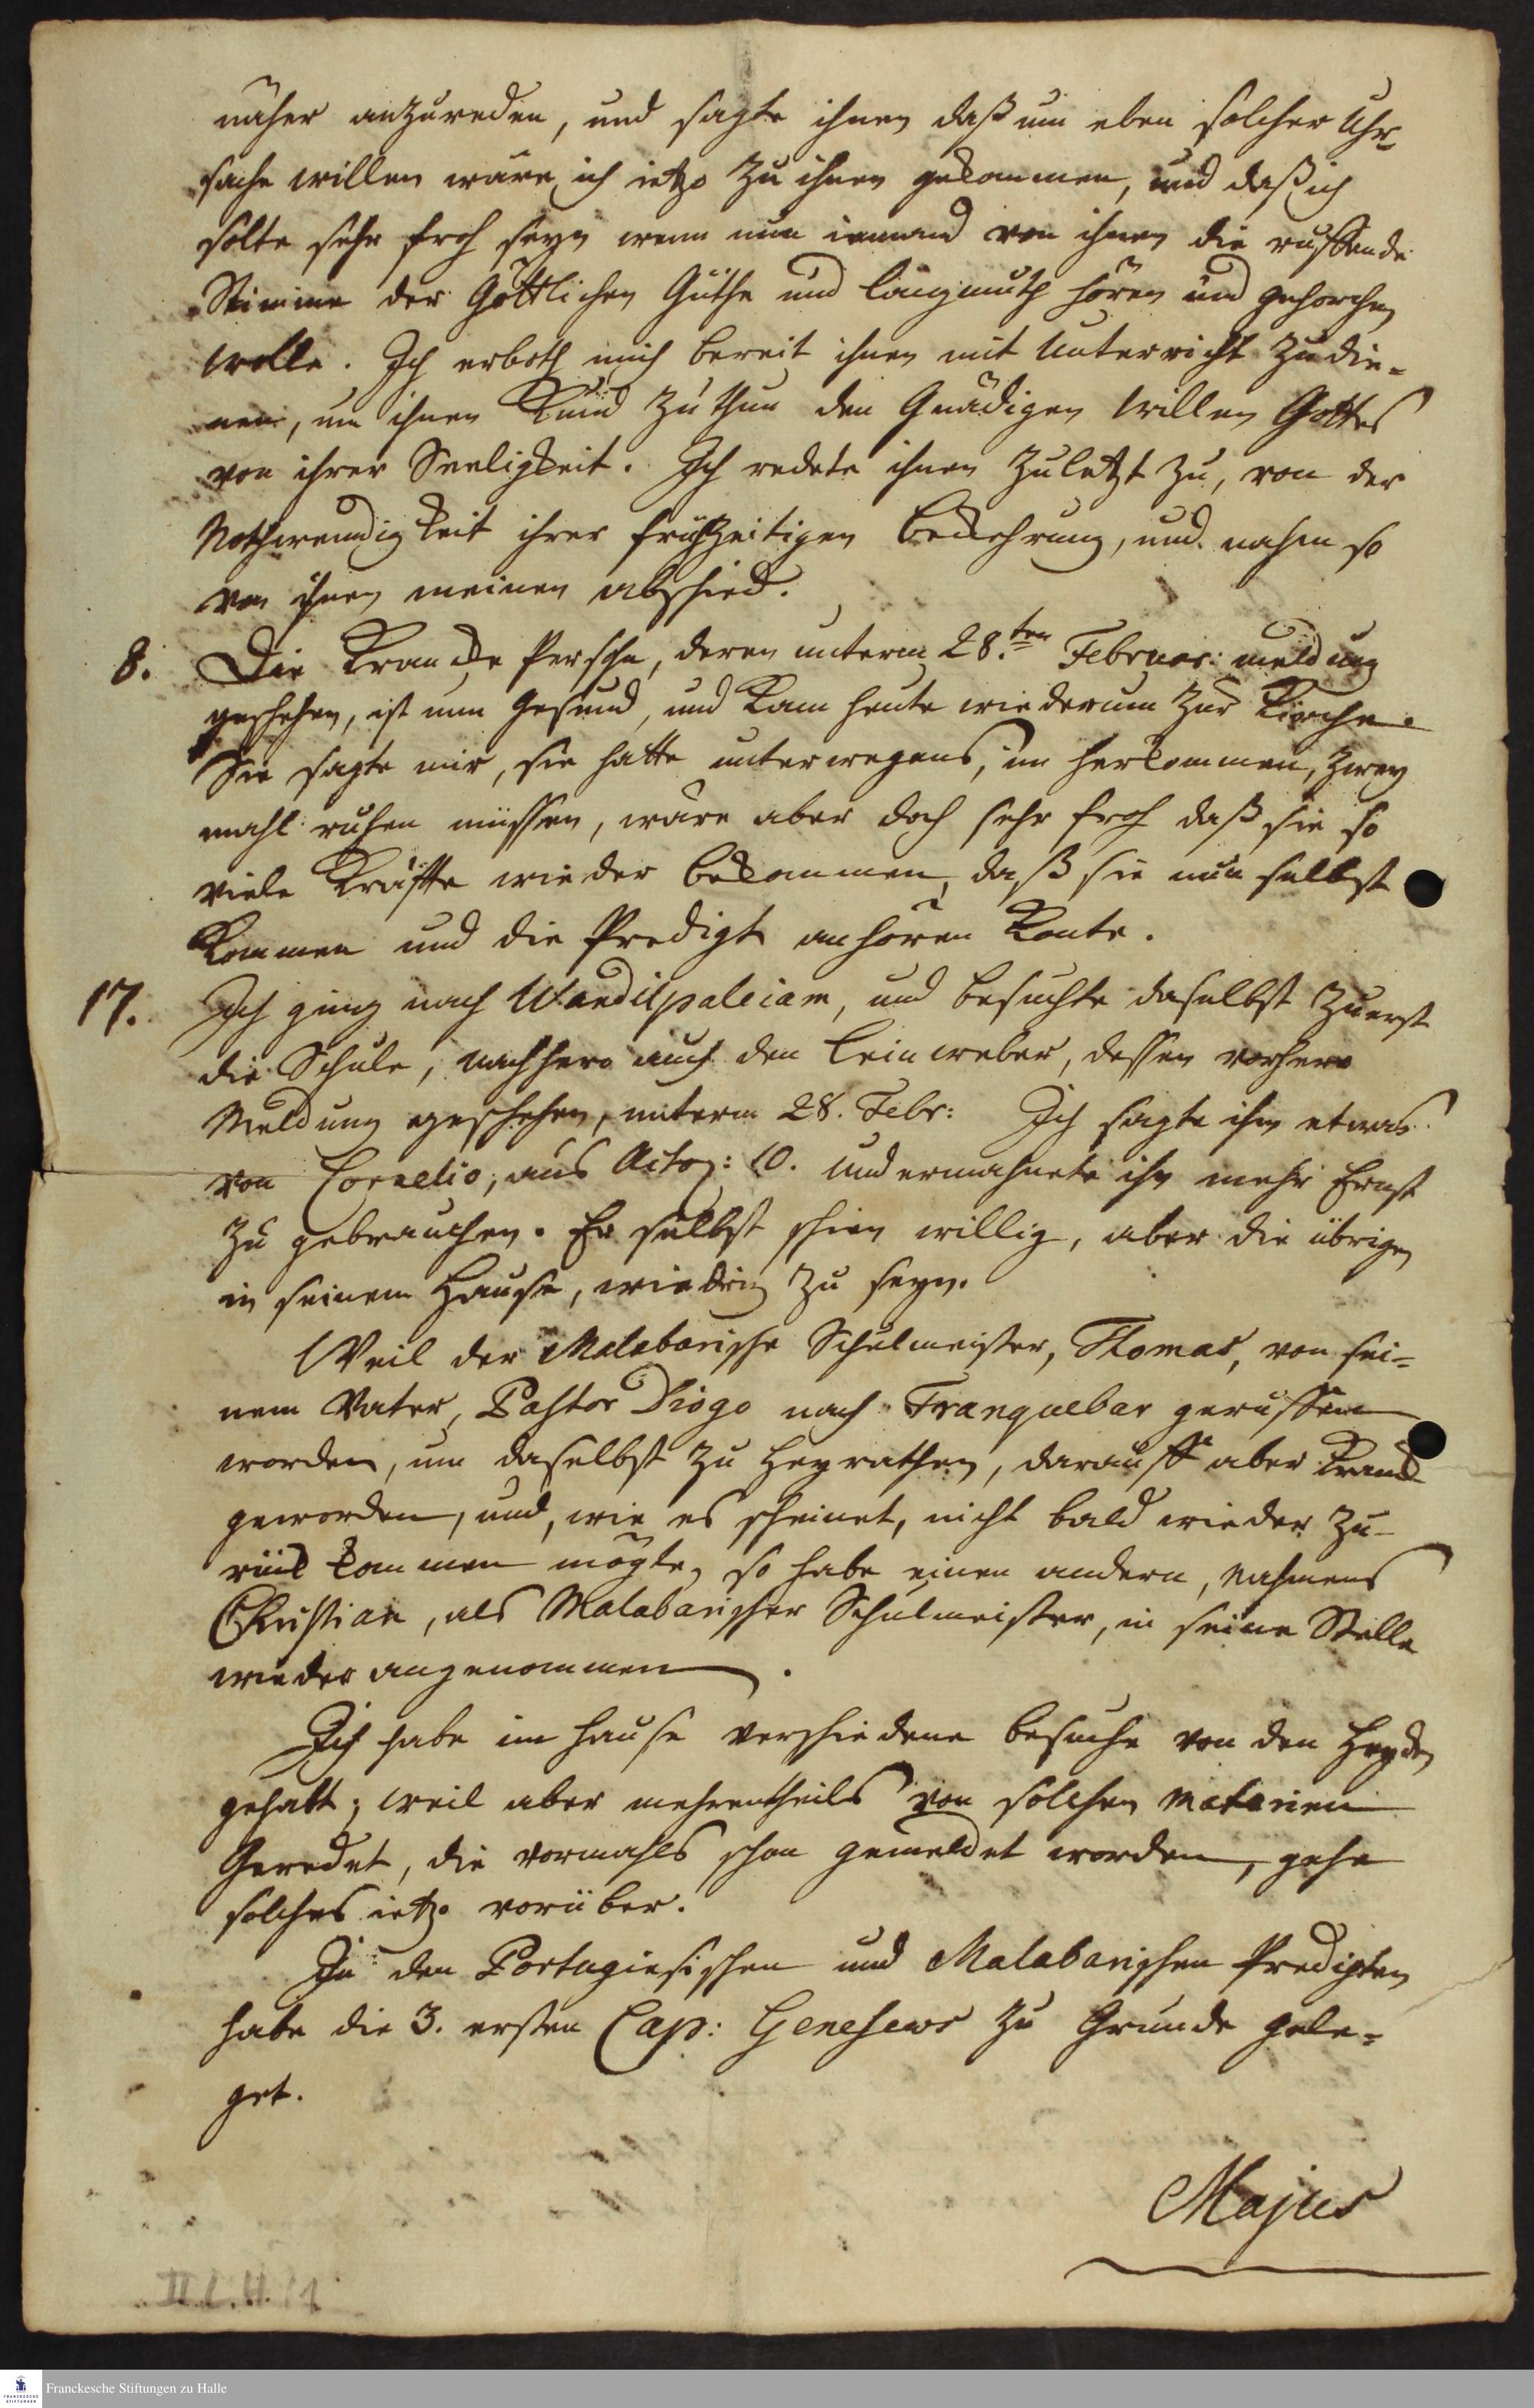 näher anzureden, und sagte ihnen daß um eben solcher Uhr-
sache willen wäre ich ietzo zu ihnen gekommen, und daß ich
solte sehr froh seyn wenn nun iemand von ihnen die ruffende
Stimme der Göttlichen Güthe und Langmuth hören und gehorchen
wolle. Ich erboth mich bereit ihnen mit Unterricht zu die-
nen, um ihnen kund zu thun den Gnädigen Willen Gottes
von ihrer Seeligkeit. Ich redete ihnen zuletzt zu, von der
Nothwendigkeit ihrer frühzeitigen Bekehrung, und nahm so
von ihnen meinen abschied.
8. Die krancke Persohn, deren unterm 28.ten Februar: meldung
geschehen, ist nun gesund, und kam heute wiederum zur Kirche.
Sie sagte mir, sie hatte unterwegens, im herkommen, zwey
mahl ruhen müssen, wäre aber doch sehr froh daß sie so
viele Kräffte wieder bekommen, daß sie nun selbst
kommen und die Predigt anhören konte.
17. Ich ging nach Wandilpaleiam, und besuchte daselbst zuerst
die Schule, nachhero auch den Leinweber, dessen vorhero
Meldung geschehen, unterm 28. Febr: Ich sagte ihm etwas
von Cornelio, aus Actor: 10. und ermahnete ihn mehr Ernst
zu gebrauchen. Er selbst schien willig, aber die übrigen
in seinem Hause, wiedrig zu seyn.
Weil der Malabarische Schulmeister, Thomas, von sei-
nem Vater, Pastor Diogo nach Tranquebar geruffen
worden, um daselbst zu heyrathen, darauff aber kranck
geworden, und, wie es scheinet, nicht bald wieder zu-
rück kommen mögte, so habe einen andern, Nahmens
Christian, als Malabarischer Schulmeister, in seine Stelle
wieder angenommen.
Ich habe im Hause verschiedene besuche von den Heyden
gehabt; weil aber mehrentheils von solchen materien
Geredet, die vormahls schon gemeldet worden, gehe
solches ietzo vorüber.
In den Portugiesischen und Malabarischen Predigten
habe die 3. ersten Cap: Geneseos zu Grunde gele-
get.
Majus
Franckesche Stiftungen zu Halle